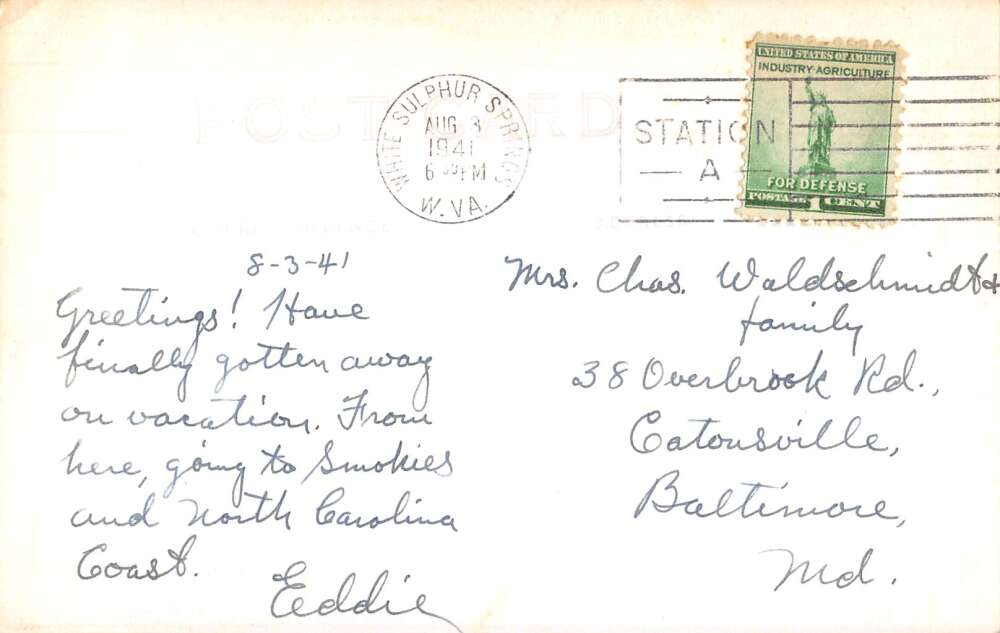 POST CARD
WHITE SULPHUR SPRINGS
AUG 3
1941
6 30 PM
W. VA.
STATION
A
UNITED STATES OF AMERICA
INDUSTRY·AGRICULTURE
FOR DEFENSE
POSTAGE 1 CENT
8-3-41
Greetings! Have
finally gotten away
on vacation. From
here, going to Smokies
and North Carolina
Coast.
Eddie
Mrs. Chas. Waldschmidt &
family
38 Overbrook Rd.,
Catonsville,
Baltimore,
Md.